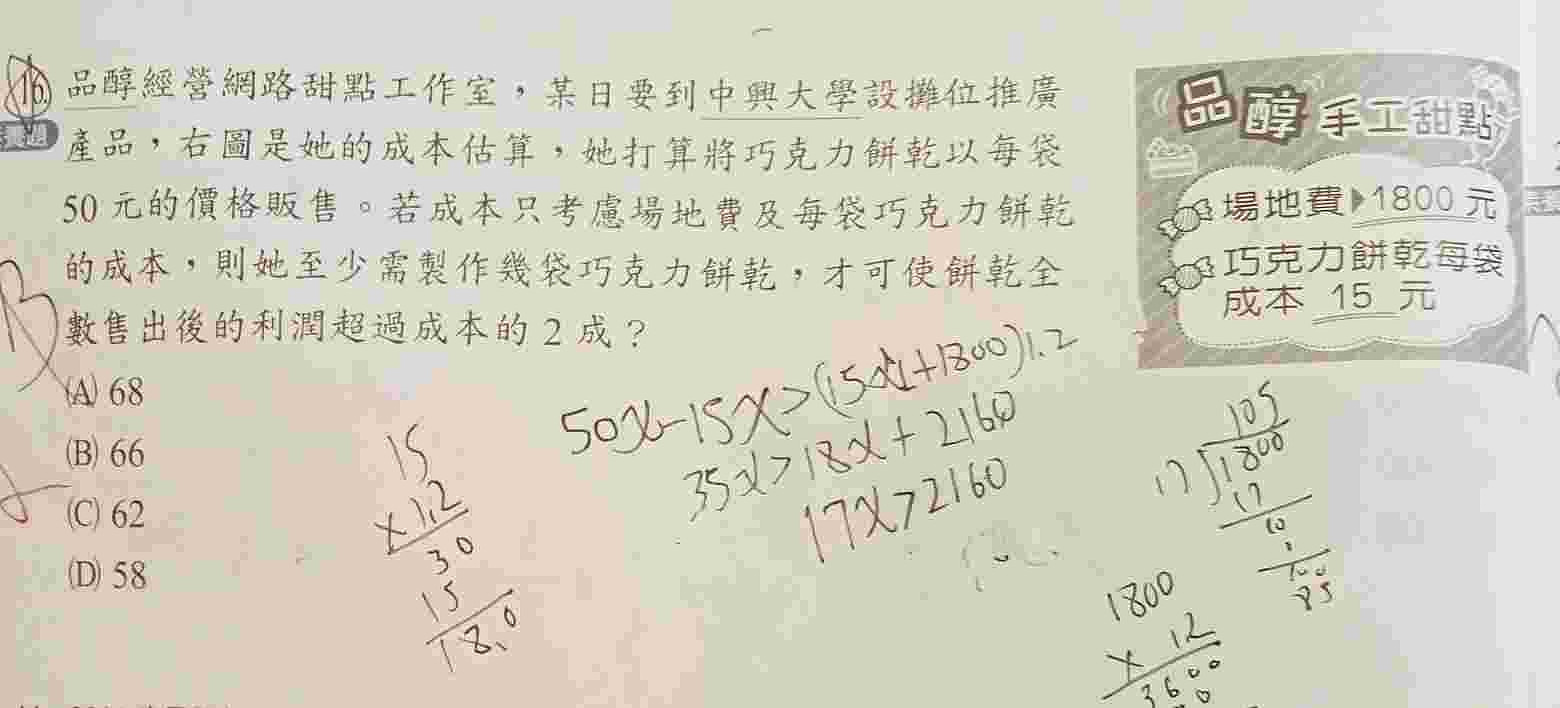 16.
品醇經營網路甜點工作室，某日要到中興大學設攤位推廣
產品，右圖是她的成本估算，她打算將巧克力餅乾以每袋
50 元的價格販售。若成本只考慮場地費及每袋巧克力餅乾
的成本，則她至少需製作幾袋巧克力餅乾，才可使餅乾全
數售出後的利潤超過成本的 2 成？
(A) 68
(B) 66
(C) 62
(D) 58
品醇手工甜點
場地費▶1800 元
巧克力餅乾每袋
成本 15 元
B
50x-15x>(15x+1800)1.2
35x>18x+2160
17x>2160
15
×1.2
30
15
18.0
105
17)1800
17
10
100
85
1800
× 12
3600